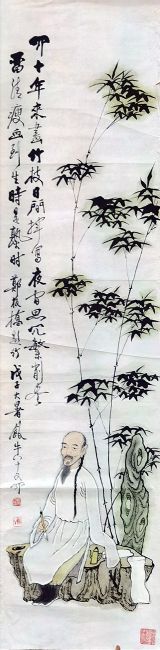 四十年來畫竹枝日間揮寫夜間思冗繁削盡
留清瘦畫到生時是熟時 鄭板橋題竹 戊子大暑